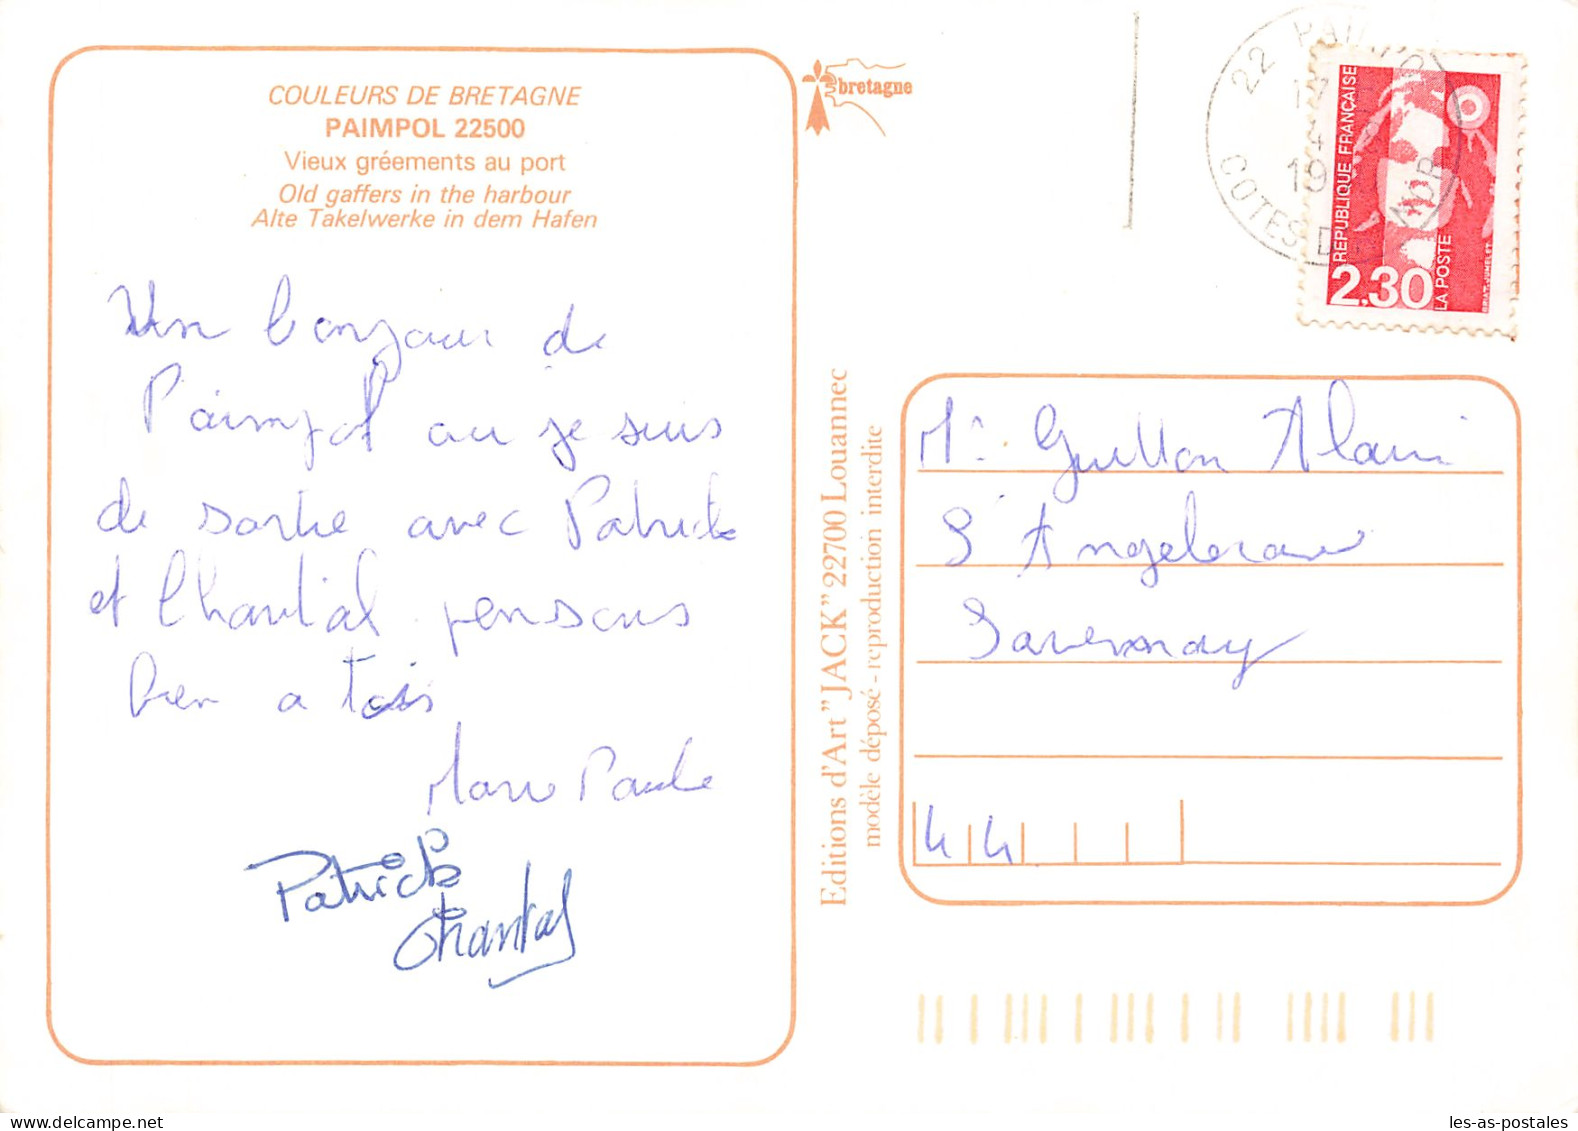 COULEURS DE BRETAGNE
PAIMPOL 22500
Vieux gréements au port
Old gaffers in the harbour
Alte Takelwerke in dem Hafen
Un bonjour de
Paimpol ou je suis
de sortie avec Patrick
et Chantal pensons
bien a toi
Marie Paule
Patrick
Chantal
bretagne
Editions d'Art "JACK" 22700 Louannec
modèle déposé - reproduction interdite
22 PAIMPOL
19
COTES D NOR
REPUBLIQUE FRANÇAISE
2,30
LA POSTE
BRIAT. JUMELET
Mr Guillon Alain
Savenay
44
delcampe.net
les-as-postales